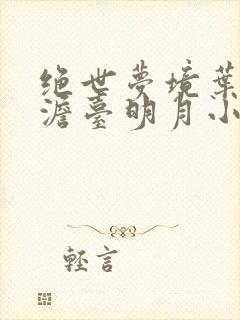 绝世夢境葉
澹臺明月小
輕言